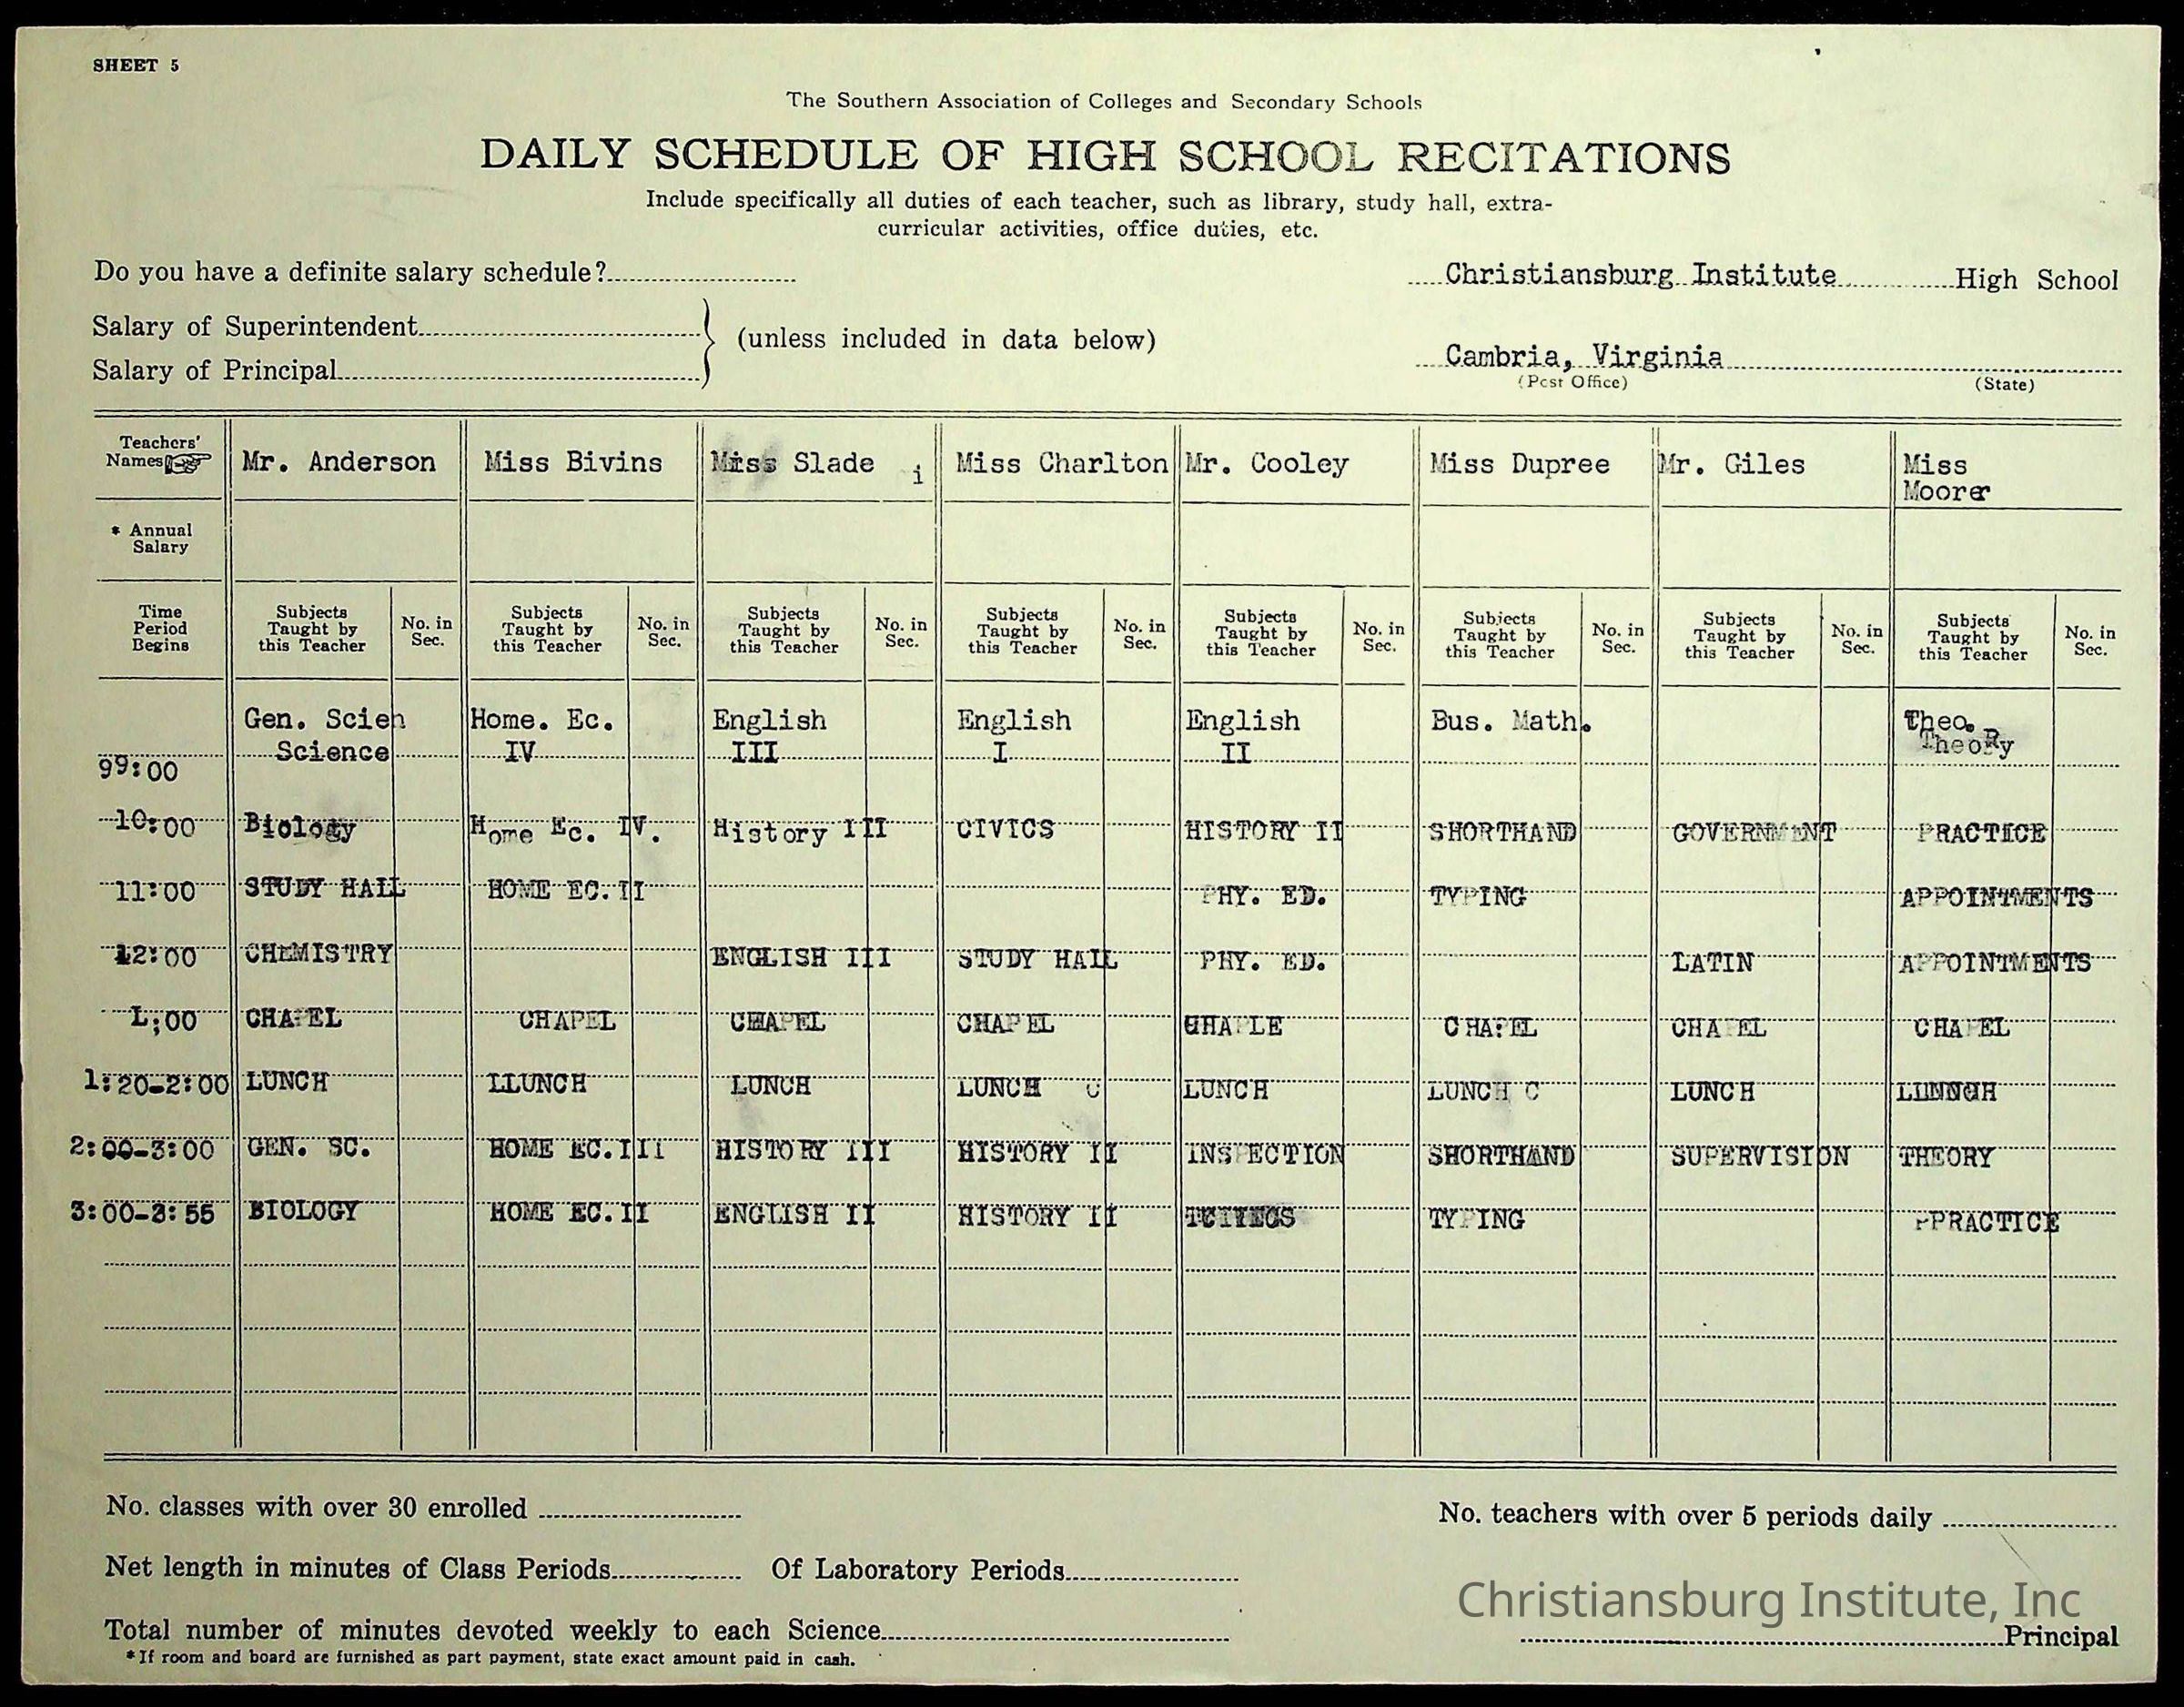 SHEET 5
The Southern Association of Colleges and Secondary Schools
DAILY SCHEDULE OF HIGH SCHOOL RECITATIONS
Include specifically all duties of each teacher, such as library, study hall, extra-
curricular activities, office duties, etc.
Do you have a definite salary schedule? Christiansburg Institute High School
Salary of Superintendent
(unless included in data below)
Salary of Principal
Cambria, Virginia
(Post Office) (State)
Teachers' Names Mr. Anderson Miss Bivins Miss Slade i Miss Charlton Mr. Cooley Miss Dupree Mr. Giles Miss Moorer
* Annual Salary
Time Period Begins Subjects Taught by this Teacher No. in Sec. Subjects Taught by this Teacher No. in Sec. Subjects Taught by this Teacher No. in Sec. Subjects Taught by this Teacher No. in Sec. Subjects Taught by this Teacher No. in Sec. Subjects Taught by this Teacher No. in Sec. Subjects Taught by this Teacher No. in Sec. Subjects Taught by this Teacher No. in Sec.
Gen. Scien Home. Ec. English English English Bus. Math. Theo.
Science IV III I II Theory
99:00
10:00 Biology Home Ec. IV. History III CIVICS HISTORY II SHORTHAND GOVERNMENT PRACTICE
11:00 STUDY HALL HOME EC. II PHY. ED. TYPING APPOINTMENTS
12:00 CHEMISTRY ENGLISH III STUDY HALL PHY. ED. LATIN APPOINTMENTS
1:00 CHAPEL CHAPEL CHAPEL CHAPEL CHAPLE CHAPEL CHAPEL CHAPEL
1:20-2:00 LUNCH LLUNCH LUNCH LUNCH C LUNCH LUNCH C LUNCH
2:00-3:00 GEN. SC. HOME EC.III HISTORY III HISTORY II INSPECTION SHORTHAND SUPERVISION THEORY
3:00-3:55 BIOLOGY HOME EC.II ENGLISH II HISTORY II TYPING PPRACTICE
No. classes with over 30 enrolled No. teachers with over 5 periods daily
Net length in minutes of Class Periods Of Laboratory Periods
Christiansburg Institute, Inc
Total number of minutes devoted weekly to each Science Principal
*If room and board are furnished as part payment, state exact amount paid in cash.